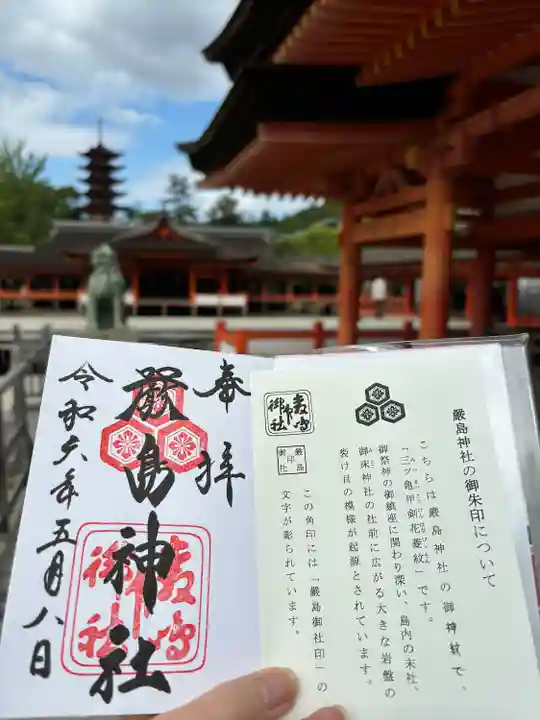 奉拝
嚴島神社
令和六年五月八日
嚴島神社の御朱印について
こちらは嚴島神社の御神紋で、
「三ツ亀甲剣花菱紋」です。
御祭神の御鎮座に関わり深い、島内の末社、
御床神社の社前に広がる大きな岩盤の
裂け目の模様が起源とされています。
この角印には「嚴島御社印」の
文字が彫られています。
嚴島
御社印